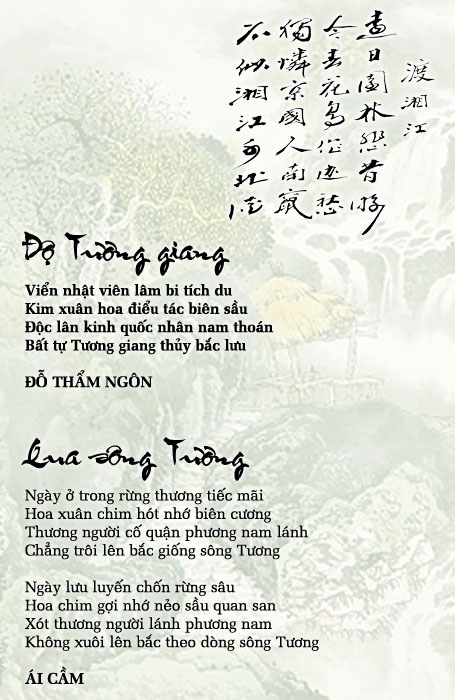 渡湘江
遲日園林悲昔游
今春花鳥作邊愁
獨憐京國人南竄
不似湘江水北流
Độ Tương giang
Viển nhật viên lâm bi tích du
Kim xuân hoa điểu tác biên sầu
Độc lân kinh quốc nhân nam thoán
Bất tự Tương giang thủy bắc lưu
ĐỖ THẨM NGÔN
Qua sông Tương
Ngày ở trong rừng thương tiếc mãi
Hoa xuân chim hót nhớ biên cương
Thương người cố quận phương nam lánh
Chẳng trôi lên bắc giống sông Tương
Ngày lưu luyến chốn rừng sâu
Hoa chim gợi nhớ nẻo sầu quan san
Xót thương người lánh phương nam
Không xuôi lên bắc theo dòng sông Tương
ÁI CẦM